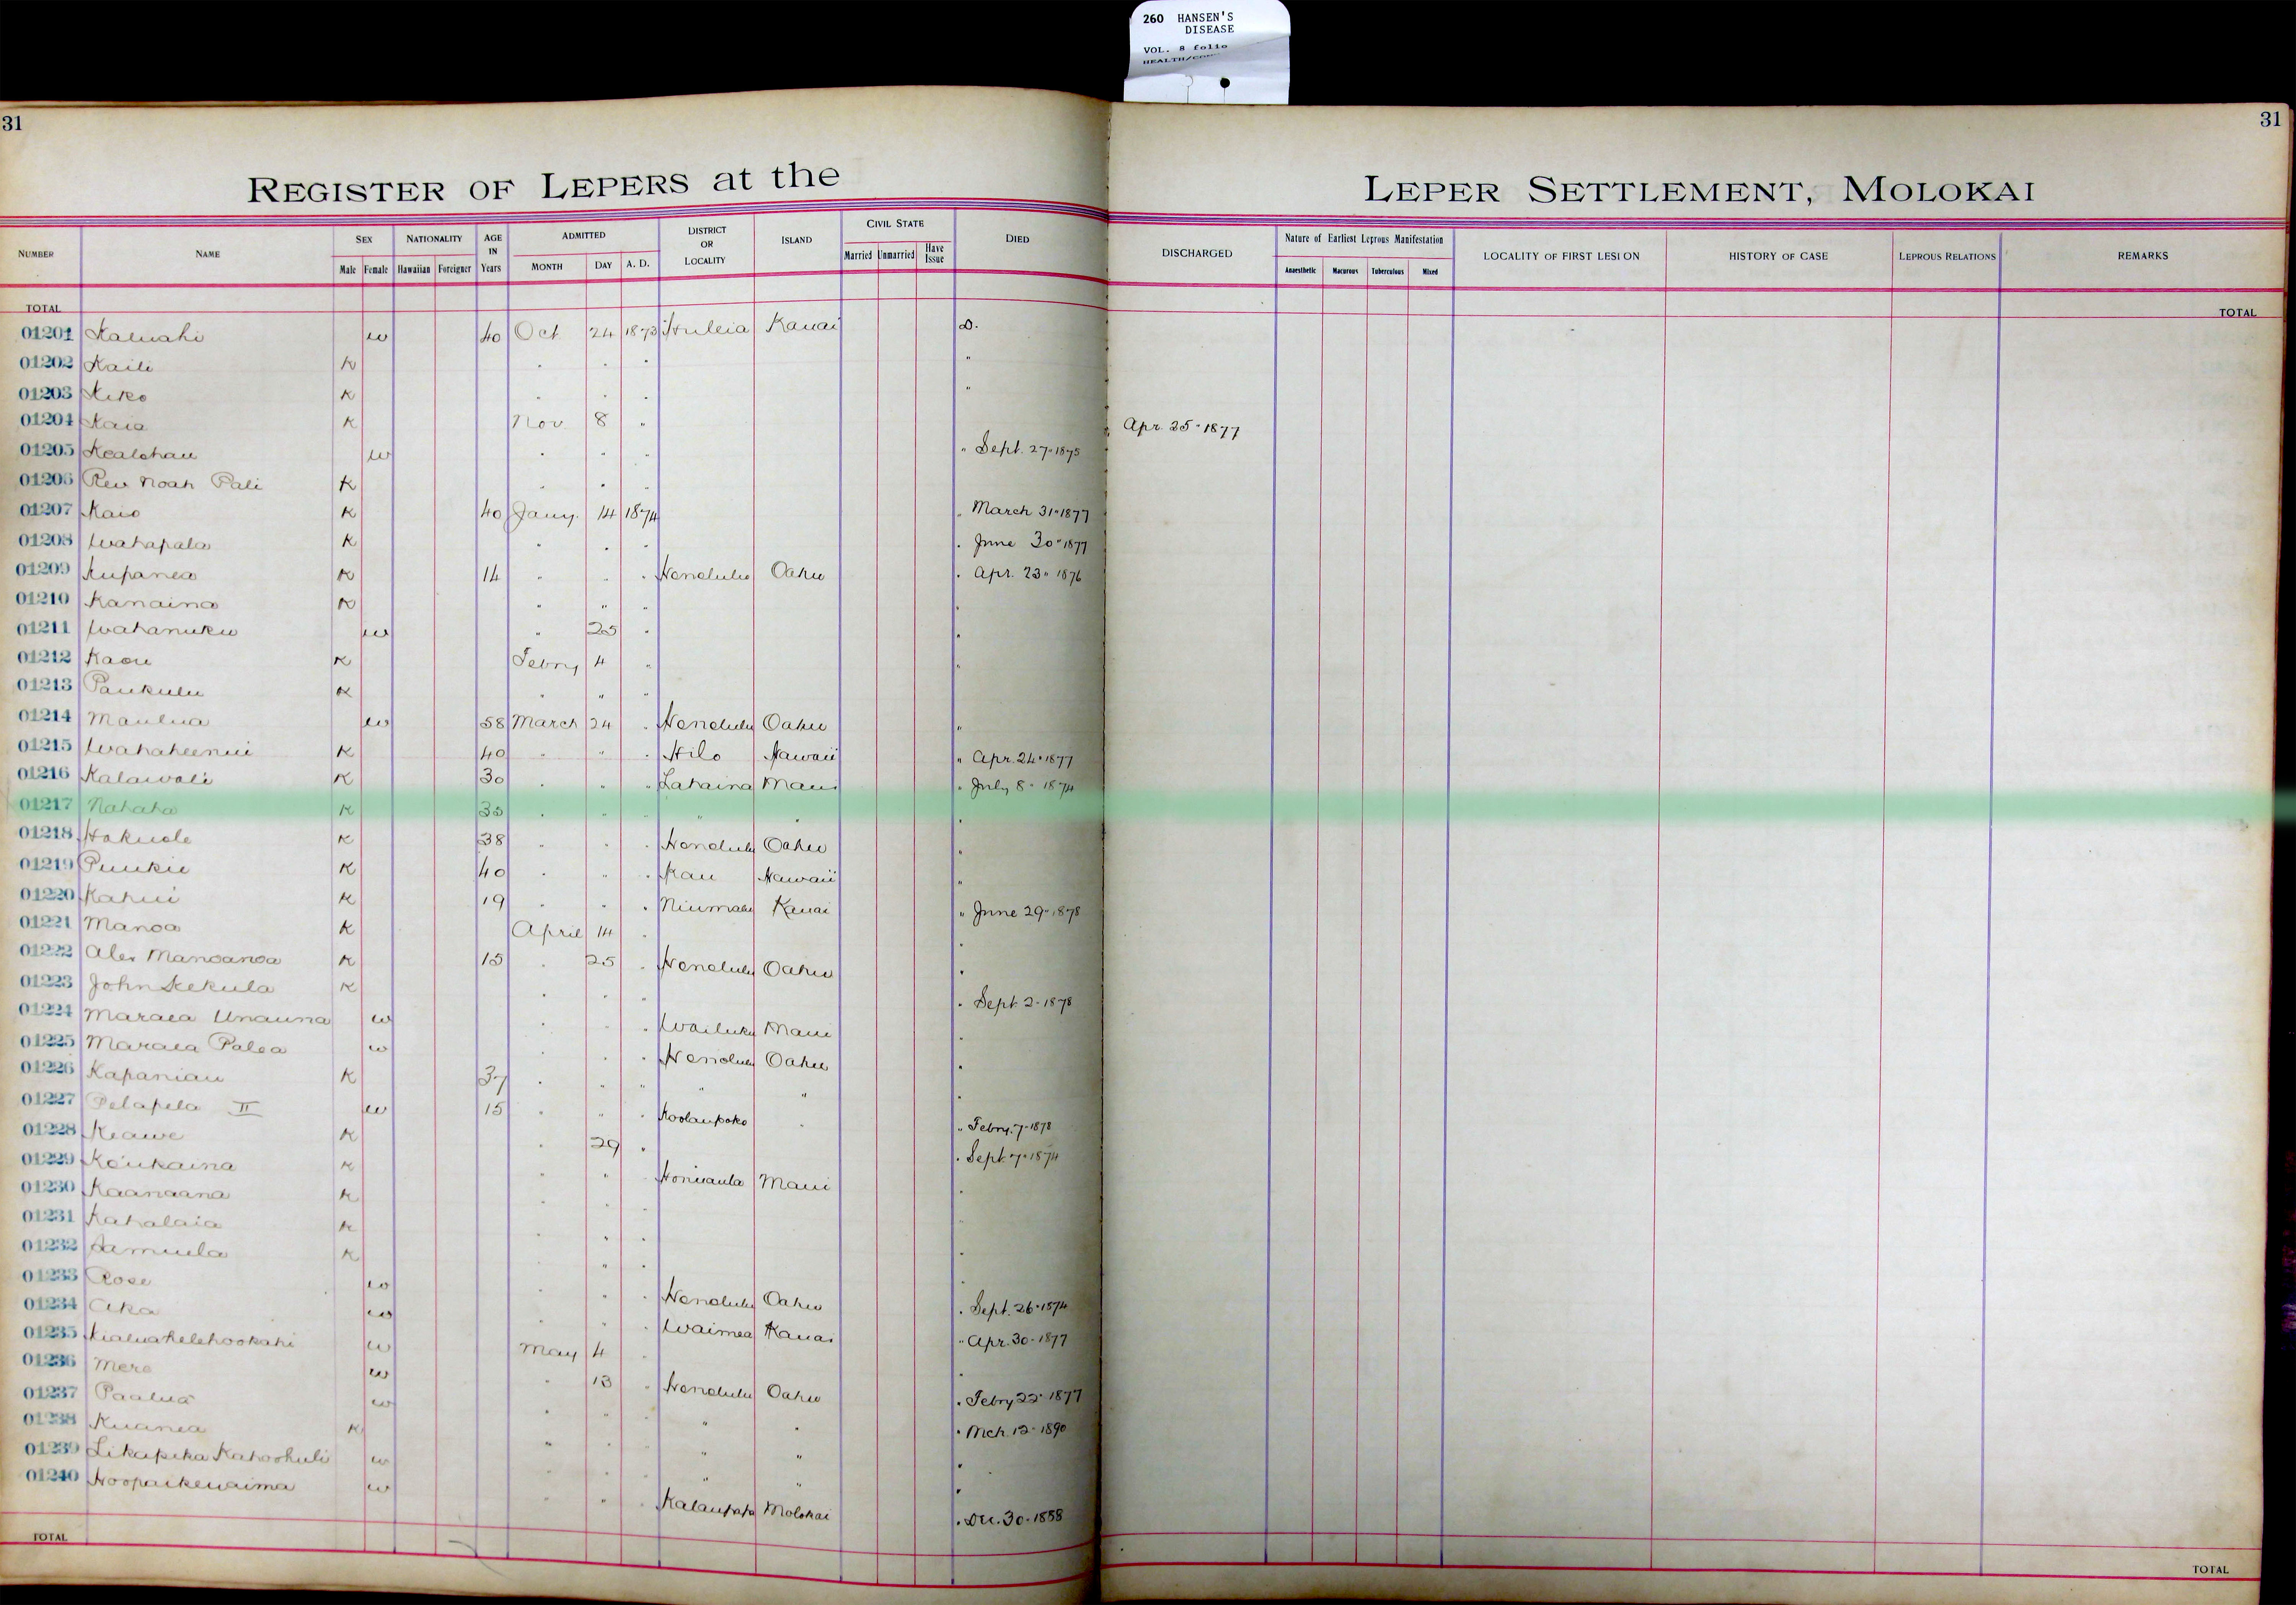 260 HANSEN'S
DISEASE
VOL. 8 folio
31
31
REGISTER OF LEPERS at the LEPER SETTLEMENT, MOLOKAI
NUMBER NAME SEX NATIONALITY AGE IN Years ADMITTED DISTRICT OR LOCALITY ISLAND CIVIL STATE DIED DISCHARGED Nature of Earliest Leprous Manifestation LOCALITY OF FIRST LESION HISTORY OF CASE LEPROUS RELATIONS REMARKS
Male Female Hawaiian Foreigner MONTH DAY A. D. Married Unmarried Have Issue Anaesthetic Macurous Tuberculous Mixed
TOTAL TOTAL
01201 Kaluahi w 40 Oct 24 1873 Huleia Kauai D.
01202 Kaili K " " " "
01203 Keko K " " " "
01204 Kaia K Nov 8 " " Apr. 25" 1877
01205 Kealohau w " " " " Sept. 27" 1875
01206 Rev Noah Pali K " " "
01207 Kaio K 40 Jany. 14 1874 " March 31" 1877
01208 Wahapala K " " " " June 30" 1877
01209 Kupanea K 14 " " " Honolulu Oahu " Apr. 23" 1876
01210 Kanaina K " " " "
01211 Wahanuku w " 25 " "
01212 Kaou K Febry 4 " "
01213 Paukulu K " " "
01214 Maulua w 58 March 24 " Honolulu Oahu "
01215 Wahaheenui K 40 " " " Hilo Hawaii " Apr. 24" 1877
01216 Kalawale K 30 " " " Lahaina Maui " July 8" 1874
01217 Nahaha K 35 " " " " " "
01218 Hakuole K 38 " " " Honolulu Oahu "
01219 Puukie K 40 " " " Kau Hawaii "
01220 Kahui K 19 " " " Niumalu Kauai " June 29" 1878
01221 Manoa K April 14 " "
01222 Alex Manoanoa K 15 " 25 " Honolulu Oahu "
01223 John Kekula K " " " " Sept 2" 1878
01224 Maraea Unauna w " " " Wailuku Maui "
01225 Maraea Palea w " " " Honolulu Oahu "
01226 Kapaniau K 37 " " " " " "
01227 Pelapela II w 15 " " " Koolaupoko " " Febry. 7" 1878
01228 Keawe K " 29 " " Sept 7" 1874
01229 Keukaina K " " " Honuaula Maui "
01230 Kaanaana K " " "
01231 Kahalaia K " " " "
01232 Samuela K " " "
01233 Rose w " " " Honolulu Oahu " Sept. 26" 1874
01234 Aka w " " " Waimea Kauai " Apr. 30" 1877
01235 w May 4 " "
01236 Mere w " 13 " Honolulu Oahu " Febry 22" 1877
01237 Paalua w " " " " " " Mch 12" 1890
01238 Kuanea K " " " " "
01239 Likapeka Kahoohuli w " " " " " "
01240 Hoopaikewaima w " " " Kalaupapa Molokai " Dec. 30" 1888
TOTAL TOTAL